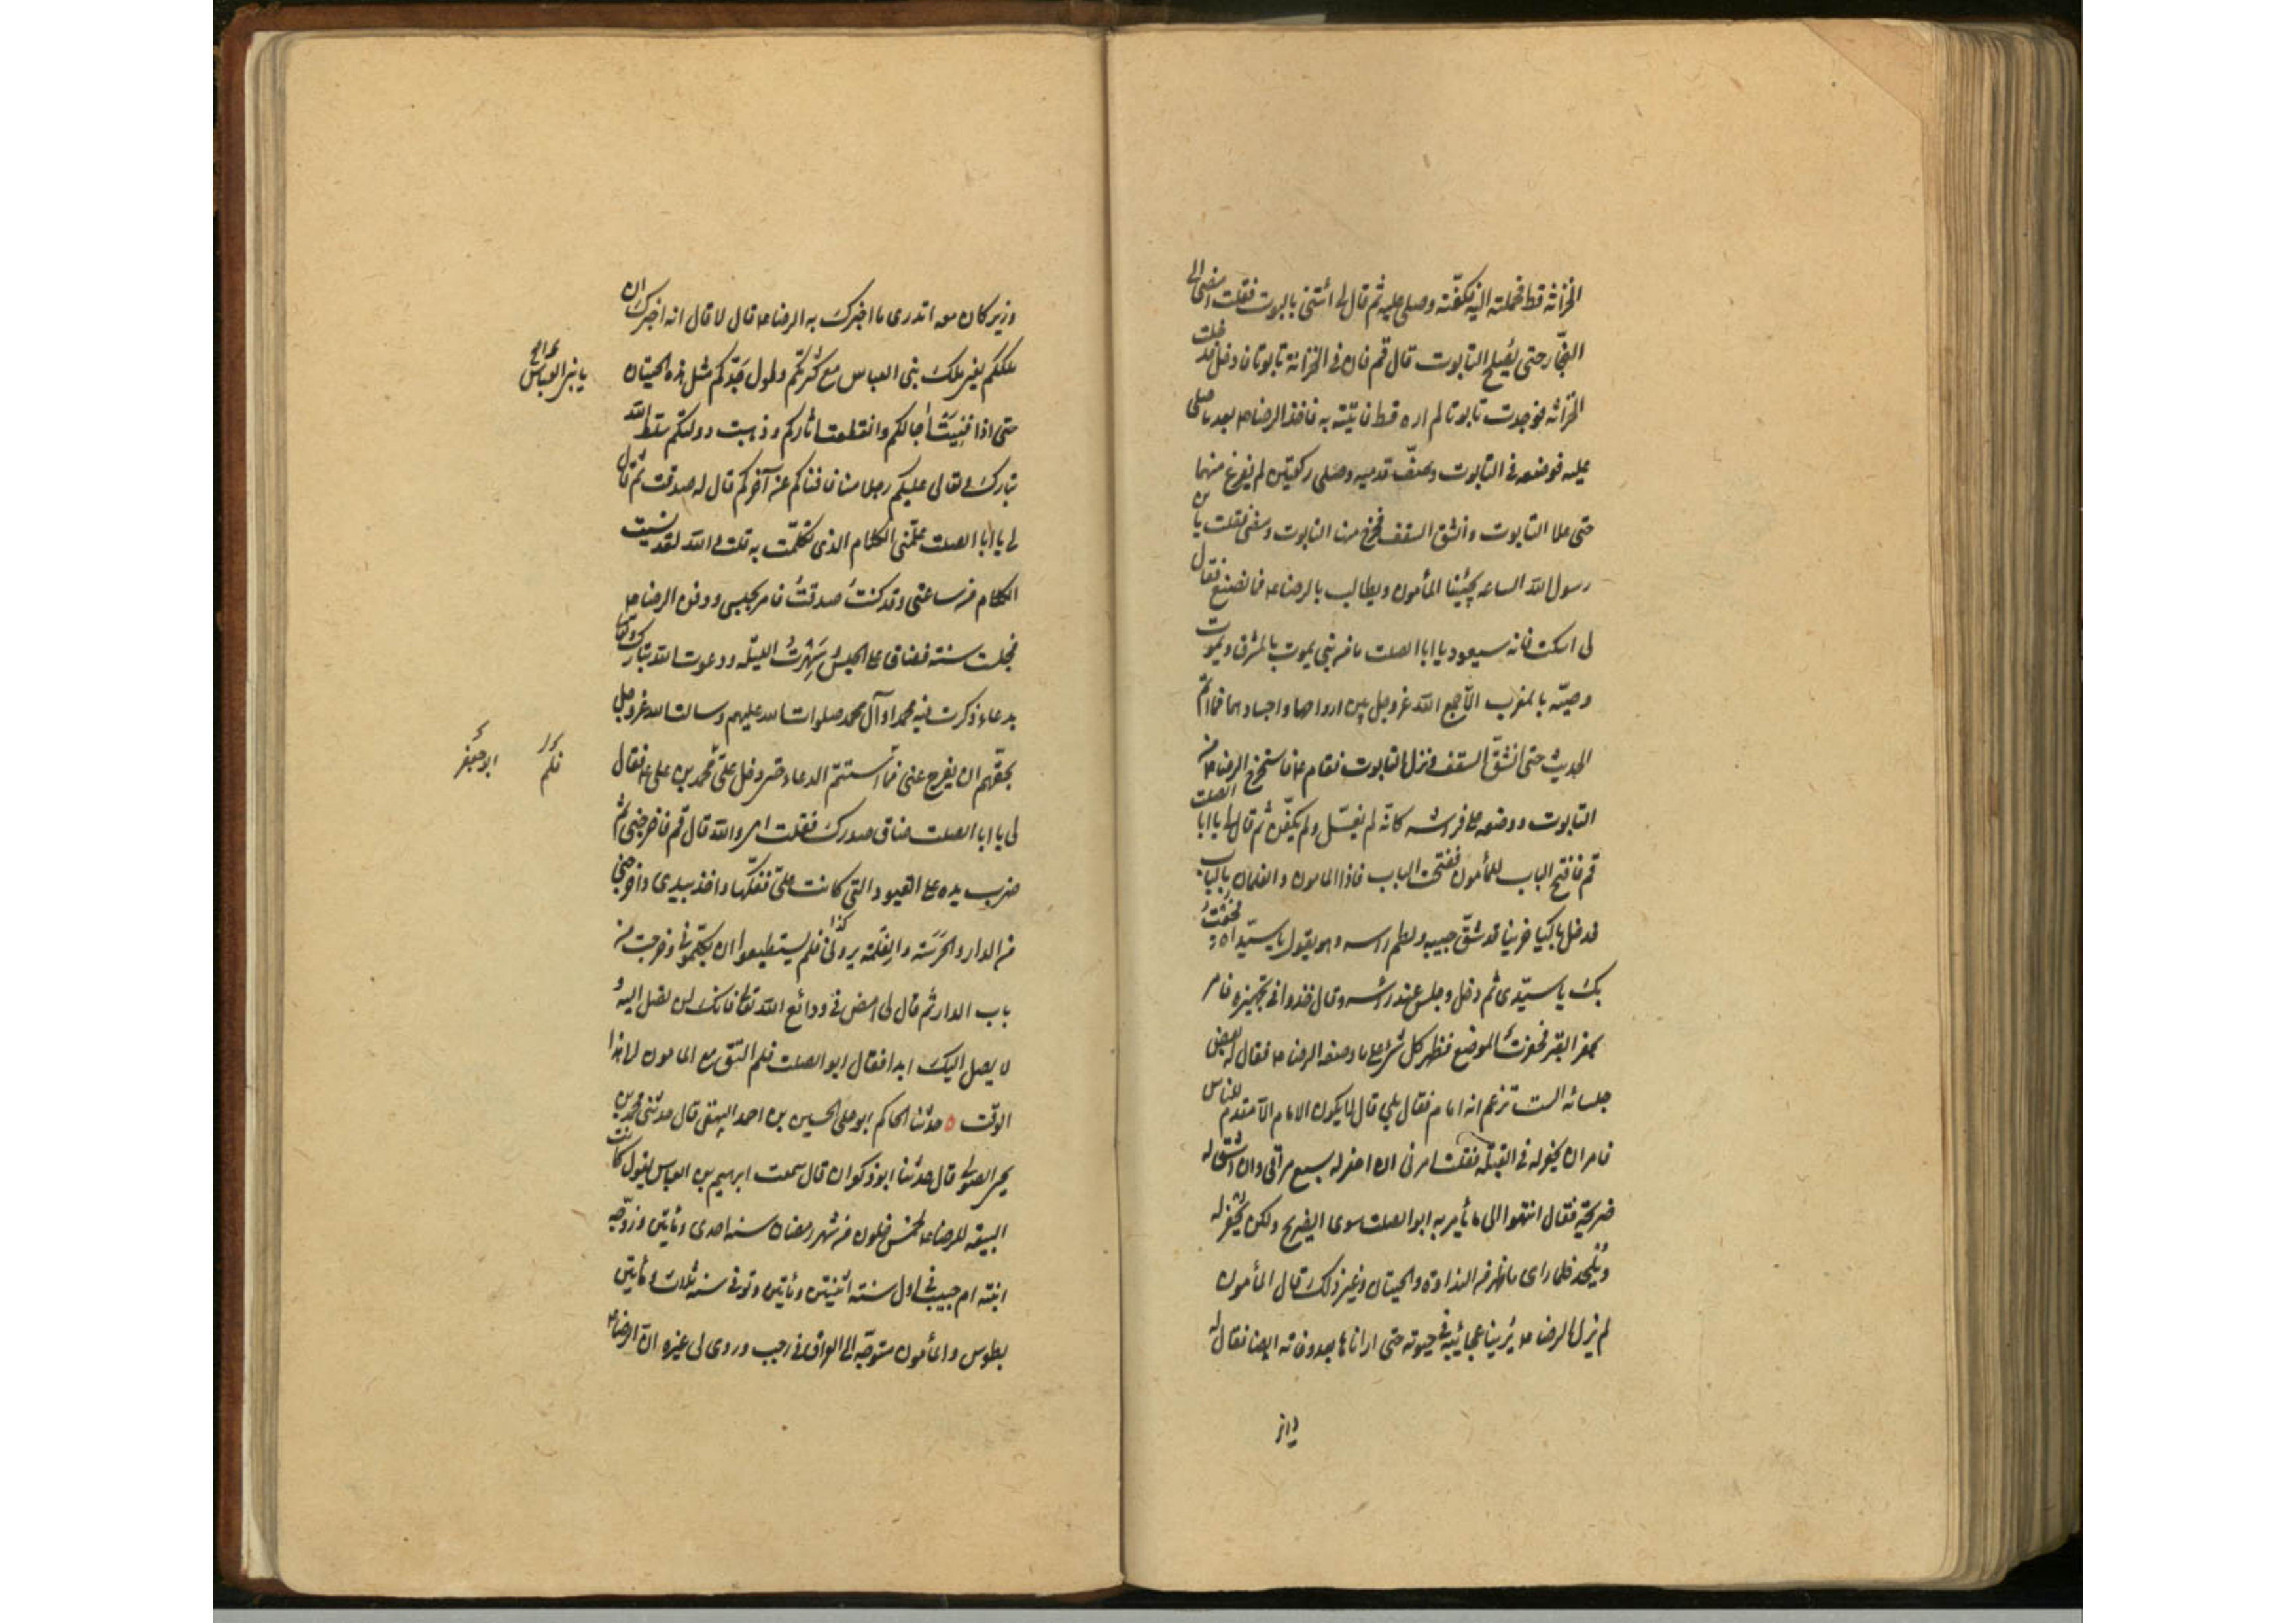 الخزانة قط فحملته اليه فكفّنه وصلى عليه ثم قال لى ائتنى بالتابوت فقلت امضى الى
النجّار حتى يُصلح التابوت قال قم فان فى الخزانة تابوتا فدخلت
الخزانة فوجدت تابوتا لم اره قط فاتيته به فاخذ الرضا ع بعد ما صلى
عليه فوضعه فى التابوت وصفّ قدميه وصلى ركعتين لم يفرغ منهما
حتى علا التابوت وانشق السقف فخرج منها التابوت ومضى فقلت يا بن
رسول الله الساعه يجيئنا المأمون ويطالب بالرضا ع فما نصنع فقال
لى اسكت فانه سيعود يا ابا الصلت ما من نبى يموت بالمشرق ويموت
وصيّه بالمغرب الّا جمع الله عزوجل بين ارواحهما واجسادهما فما اتمّ
الحديث حتى انشقّ السقف ونزل التابوت فقام ع فاستخرج الرضا ع من
التابوت ووضعه على فراشه كانّه لم يغسّل ولم يكفّن ثم قال لى يا ابا الصلت
قم فافتح الباب للمأمون ففتحت الباب فاذا المامون والغلمان بالباب
فدخل باكيا حزينا قد شقّ جيبه ولطم راسه وهو يقول يا سيّداه فُجعتُ
بك يا سيّدى ثم دخل وجلس عند راسه وقال خذوا فى تجهيزه فامر
بحفر القبر فحفرت الموضع فظهر كل شئ على ما وصفه الرضا ع فقال له بعض
جلسائه الست تزعم انه امام فقال بلى قال لا يكون الامام الّا مقدم الناس
فامر ان يحفر له فى القبلة فقلت امرنى ان احفر له سبع مراقى وان اشق له
ضريحة فقال انتهوا الى ما يأمر به ابو الصلت سوى الضريح ولكن يُحفر له
ويُلحد فلما راى ما ظهر من النداوة والحيتان وغير ذلك قال المأمون
لم يزل الرضا ع يُرينا عجائبه فى حيوته حتى اراناها بعد وفاته ايضا فقال له
وزير
وزير كان معه اتدرى ما اخبرك به الرضا ع قال لا قال انه اخبرك ان
ملككم يا بنى العباس مع كثرتكم وطول مدّتكم مثل هذه الحيتان
يا بنى العباس
حتى اذا فنيت أجالكم وانقطعت اثاركم وذهبت دولتكم سلط الله
تبارك وتعالى عليكم رجلا منا فافناكم عن آخركم قال له صدقت ثم قال
لى يا ابا الصلت علّمنى الكلام الذى تكلّمت به قلت والله لقد نسيت
الكلام من ساعتى وقد كنتُ صدقتُ فامر بحبسى ودفن الرضا ع
فحبست سنة فضاق على الحبس سَهِرتُ الليلة ودعوت الله تبارك وتعالى
بدعاء ذكرت فيه محمدا وآل محمد صلوات الله عليهم وسالت الله عزوجل
بحقّهم ان يفرج عنى فما استتمّ الدعاء حتى دخل علىّ محمد بن على ع فقال
فلم
ابو جعفر
لى يا ابا الصلت ضاق صدرك فقلت اى والله قال قم فاخرجنى ثم
ضرب يده على القيود التى كانت علىّ ففكّها واخذ بيدى واخرجنى
من الدار والحَرَسَة والغِلمَة يرونى فلم يستطيعوا ان يكلّمونى وخرجت من
كذا
باب الدار ثم قال لى امض فى ودائع الله تعالى فانك لن تصل اليه و
لا يصل اليك ابدا فقال ابو الصلت فلم التق مع المامون الى هذا
الوقت ه حدّثنا الحاكم ابو على الحسين بن احمد البيهقى قال حدثنى محمد بن
يحيى الصولى قال حدثنا ابو ذكوان قال سمعت ابرهيم بن العباس يقول كانت
البيعة للرضا ع لخمس خلون من شهر رمضان سنه احدى ومأتين وزوّجه
ابنته ام حبيب فى اول سنته اثنيتن ومأتين وتوفى سنه ثلاث ومأتين
بطوس والمأمون متوجّه الى العراق فى رجب وروى لى غيره انّ الرضا ع